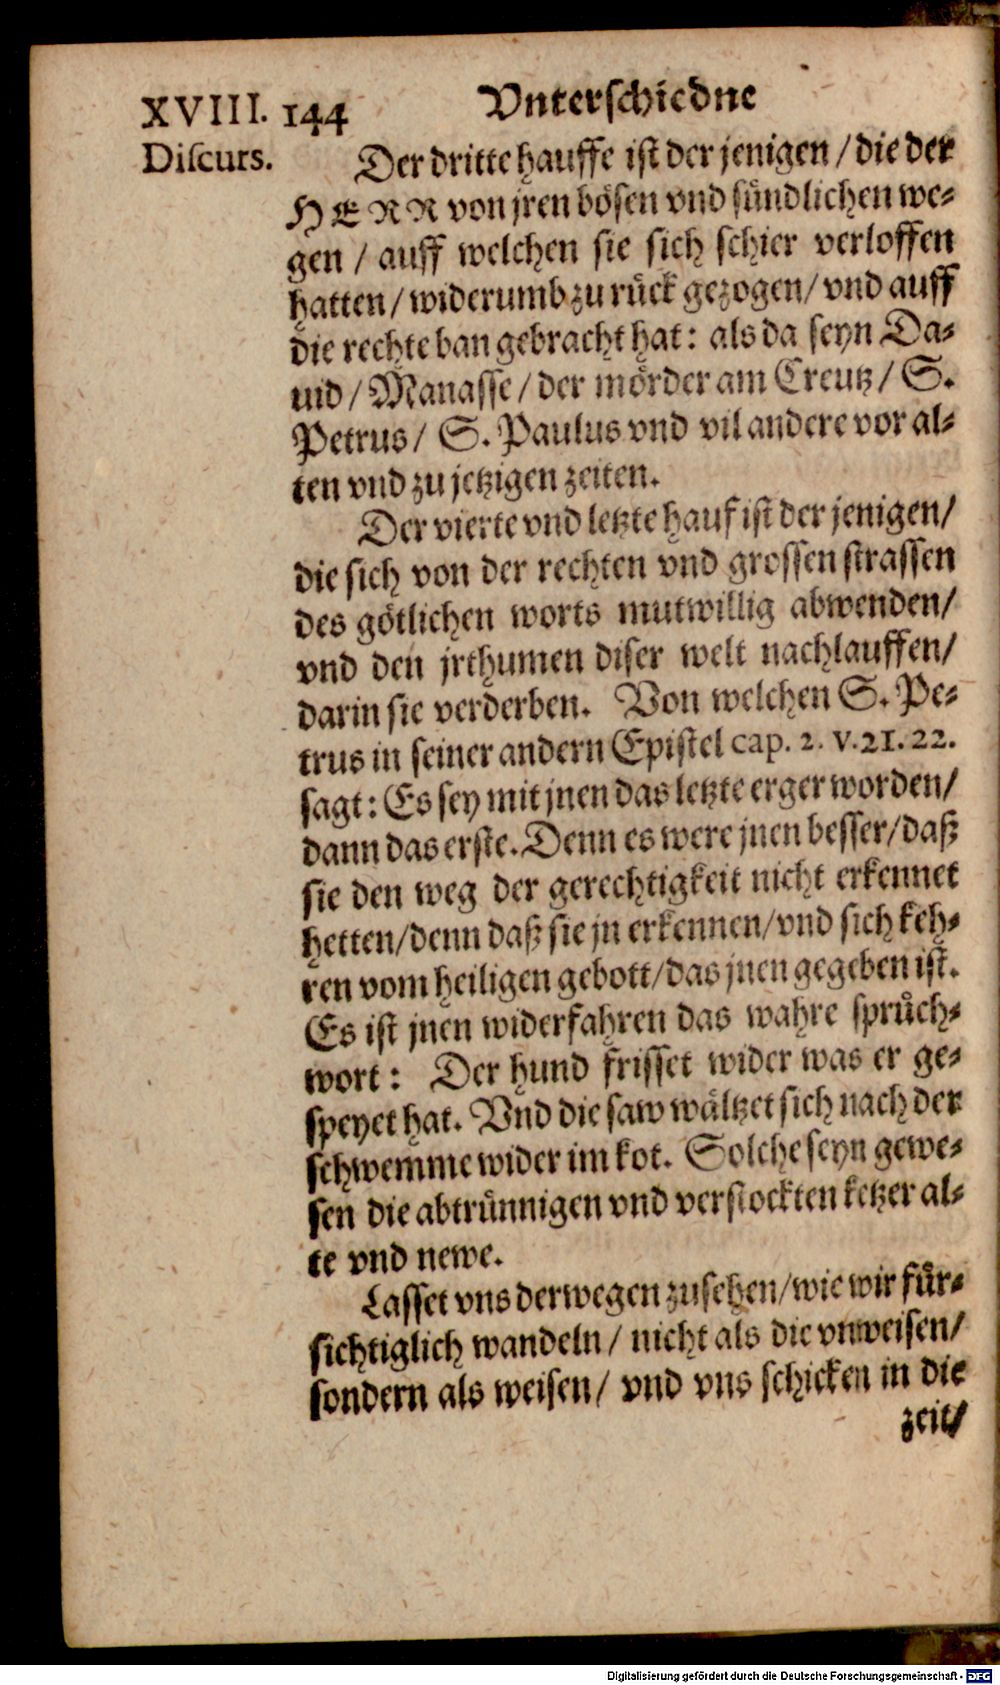 XVIII. 144 Vnterschiedne
Discurs.
Der dritte hauffe ist der jenigen / die der
HERR von jren bösen vnd sündlichen we-
gen / auff welchen sie sich schier verloffen
hatten / widerumb zu rück gezogen / vnd auff
die rechte ban gebracht hat: als da seyn Da-
uid / Manasse / der mörder am Creutz / S.
Petrus / S. Paulus vnd vil andere vor al-
ten vnd zu jetzigen zeiten.
Der vierte vnd letzte hauf ist der jenigen /
die sich von der rechten vnd grossen strassen
des götlichen worts mutwillig abwenden /
vnd den jrthumen diser welt nachlauffen /
darin sie verderben. Von welchen S. Pe-
trus in seiner andern Epistel cap. 2. v. 21. 22.
sagt: Es sey mit jnen das letzte erger worden /
dann das erste. Denn es were jnen besser / daß
sie den weg der gerechtigkeit nicht erkennet
hetten / denn daß sie jn erkennen / vnd sich keh-
ren vom heiligen gebott / das jnen gegeben ist.
Es ist jnen widerfahren das wahre sprůch-
wort: Der hund frisset wider was er ge-
speyet hat. Vnd die saw wältzet sich nach der
schwemme wider im kot. Solche seyn gewe-
sen die abtrünnigen vnd verstockten ketzer al-
te vnd newe.
Lasset vns derwegen zusehen / wie wir für-
sichtiglich wandeln / nicht als die vnweisen /
sondern als weisen / vnd vns schicken in die
zeit /
Digitalisierung gefördert durch die Deutsche Forschungsgemeinschaft - DFG